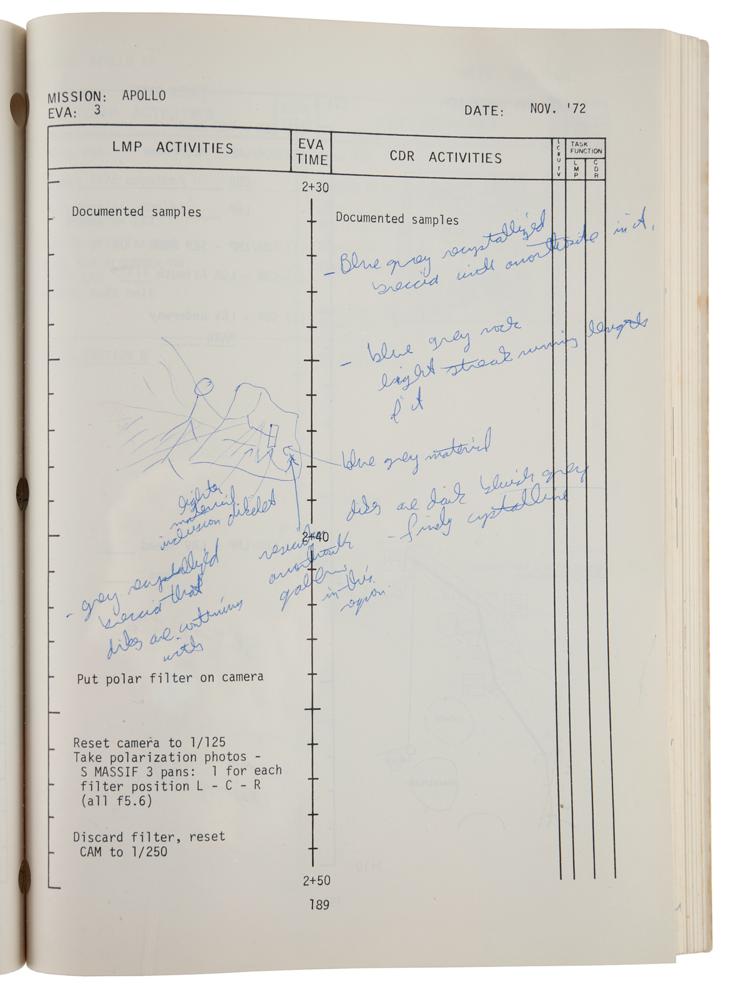 MISSION: APOLLO
EVA: 3
DATE: NOV. '72
LMP ACTIVITIES
EVA TIME
CDR ACTIVITIES
LCRU/TV
TASK FUNCTION
LMP
CDR
2+30
Documented samples
Documented samples
- Blue grey recrystallized
breccia with anorthosite in it.
- blue grey rock
light streak running length
of it
blue grey material
lighter
material
inclusion
dikes are dark bluish grey
- finely crystalline
2+40
- grey recrystallized
breccia that
dikes are
with
anorthositic
gabbro
in this
region.
Put polar filter on camera
Reset camera to 1/125
Take polarization photos -
S MASSIF 3 pans: 1 for each
filter position L - C - R
(all f5.6)
Discard filter, reset
CAM to 1/250
2+50
189